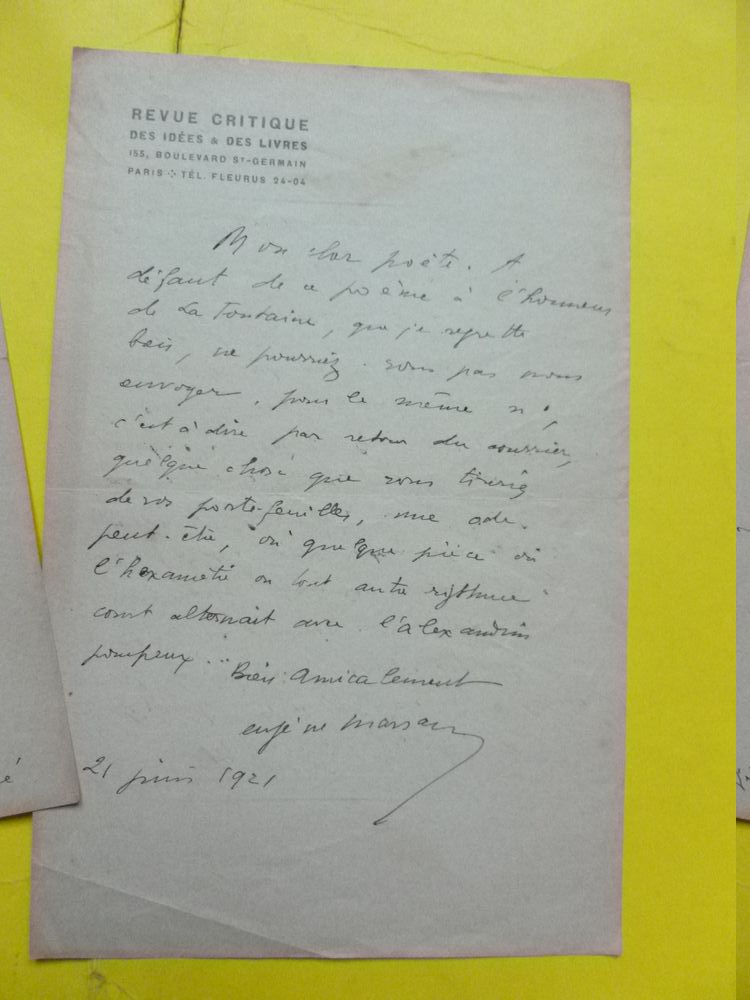 REVUE CRITIQUE
DES IDÉES & DES LIVRES
155, BOULEVARD ST-GERMAIN
PARIS TÉL. FLEURUS 24-04
Mon cher poète. A
défaut de ce poème à l'honneur
de La Fontaine, que je regrette
bien, ne pourriez-vous pas nous
envoyer, pour le même n°,
c'est à dire par retour du courrier,
quelque chose que vous tireriez
de vos porte-feuilles, une ode
peut-être, où quelque pièce où
l'hexamètre ou tout autre rythme
court alternait avec l'alexandrin
pompeux.
Bien amicalement
eugène marsan
21 juin 1921
é